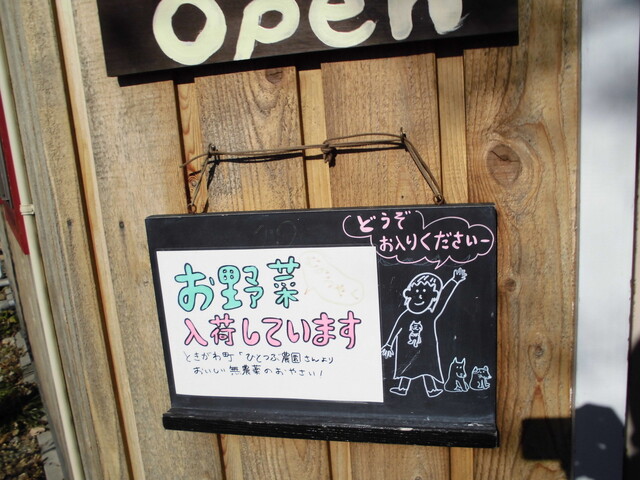 open
どうぞ
お入りくださいー
お野菜
入荷しています
ときがわ町「ひとつぶ農園さんより
おいしい無農薬のおやさい！